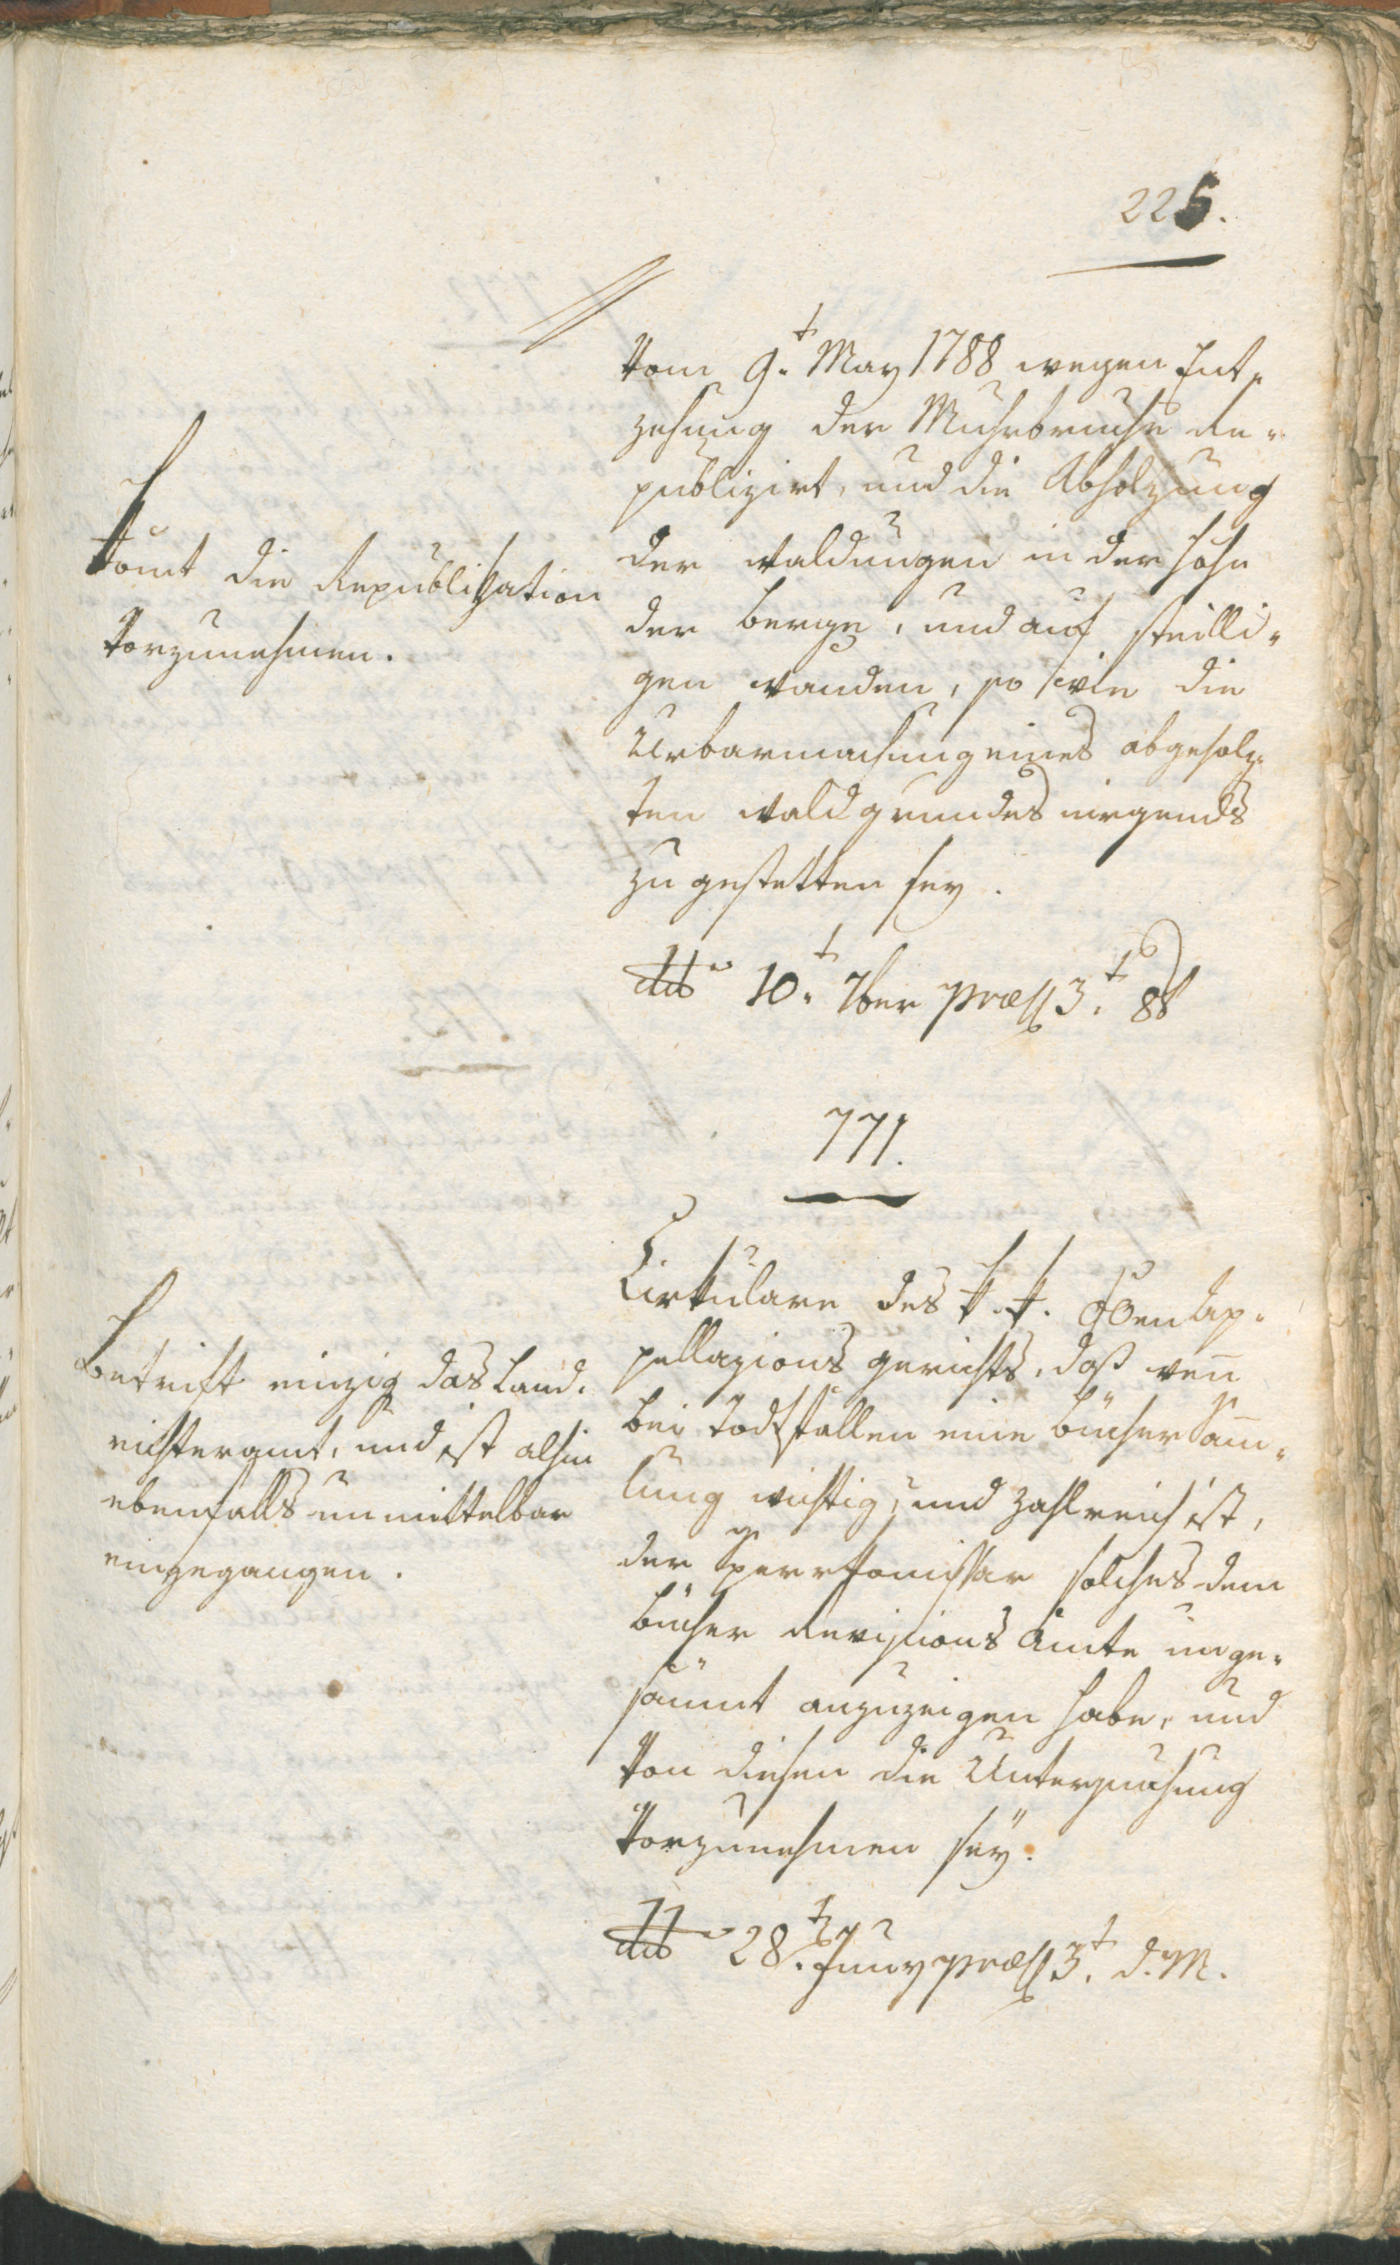 225.
vom 9.t May 1788 wegen Ent¬
stehung der Muhrbrüche re¬
publizirt, und die Abholzung
der Waldungen in der Höhe
der Berge, und auf steilli¬
gen Wänden, so wie die
Urbarmachung eines abgeholz¬
ten Waldgrundes nirgends
zu gestetten sey.
dto 10.t 7ber præs 3.t 8b
Kömt die Republikation
vorzunehmen.
771.
Cirkulare des k. k. Oben Ap¬
pellazions gerichts, daß wen̅
bei Todtfällen eine Büchersam̅¬
lung wichtig, und zahlreich ist,
der Sperrkomissar solches dem
Bücher Revisions Amte unge¬
säumt anzuzeigen habe, und
von diesen die Untersuchung
vorzunehmen seÿ.
dto 28.t Juny præs 3.t d. M.
Betrift einzig das Land¬
richteramt, und ist alhin
ebenfalls unmittelbar
eingegangen.